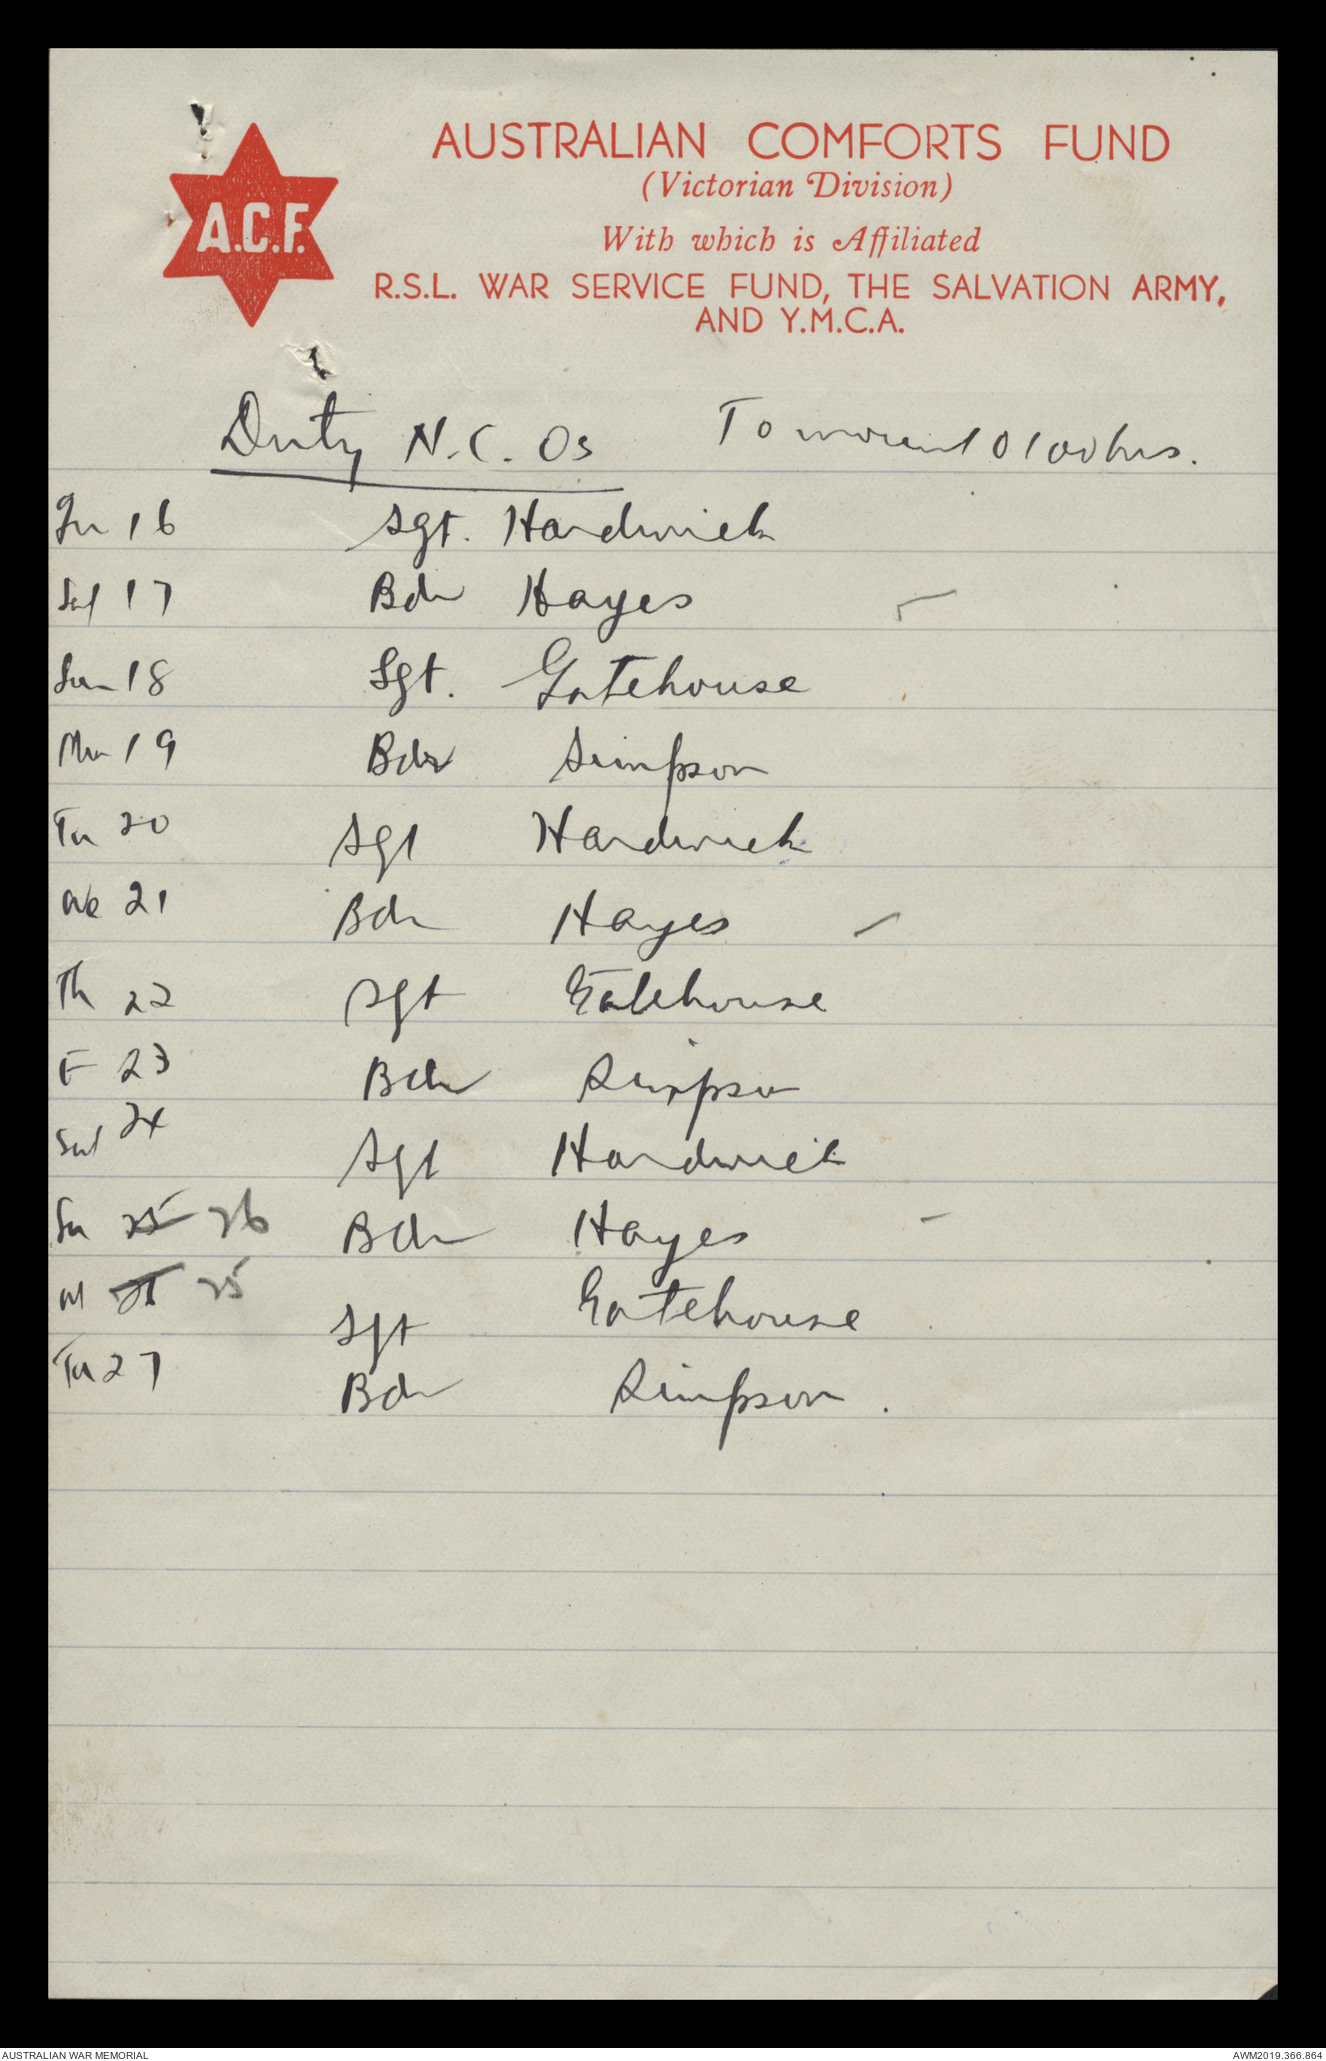 A.C.F.
AUSTRALIAN COMFORTS FUND
(Victorian Division)
With which is Affiliated
R.S.L. WAR SERVICE FUND, THE SALVATION ARMY,
AND Y.M.C.A.
Duty N.C.Os To mount 0100hrs.
Fri 16 Sgt. Hardwick
Sat 17 Bdr Hayes
Sun 18 Sgt. Gatehouse
Mon 19 Bdr Simpson
Tu 20 Sgt Hardwick
We 21 Bdr Hayes
Th 22 Sgt Gatehouse
F 23 Bdr Simpson
Sat 24 Sgt Hardwick
Su 25 26 Bdr Hayes
M 26 25 Sgt Gatehouse
Tu 27 Bdr Simpson.
AUSTRALIAN WAR MEMORIAL AWM2019.366.864